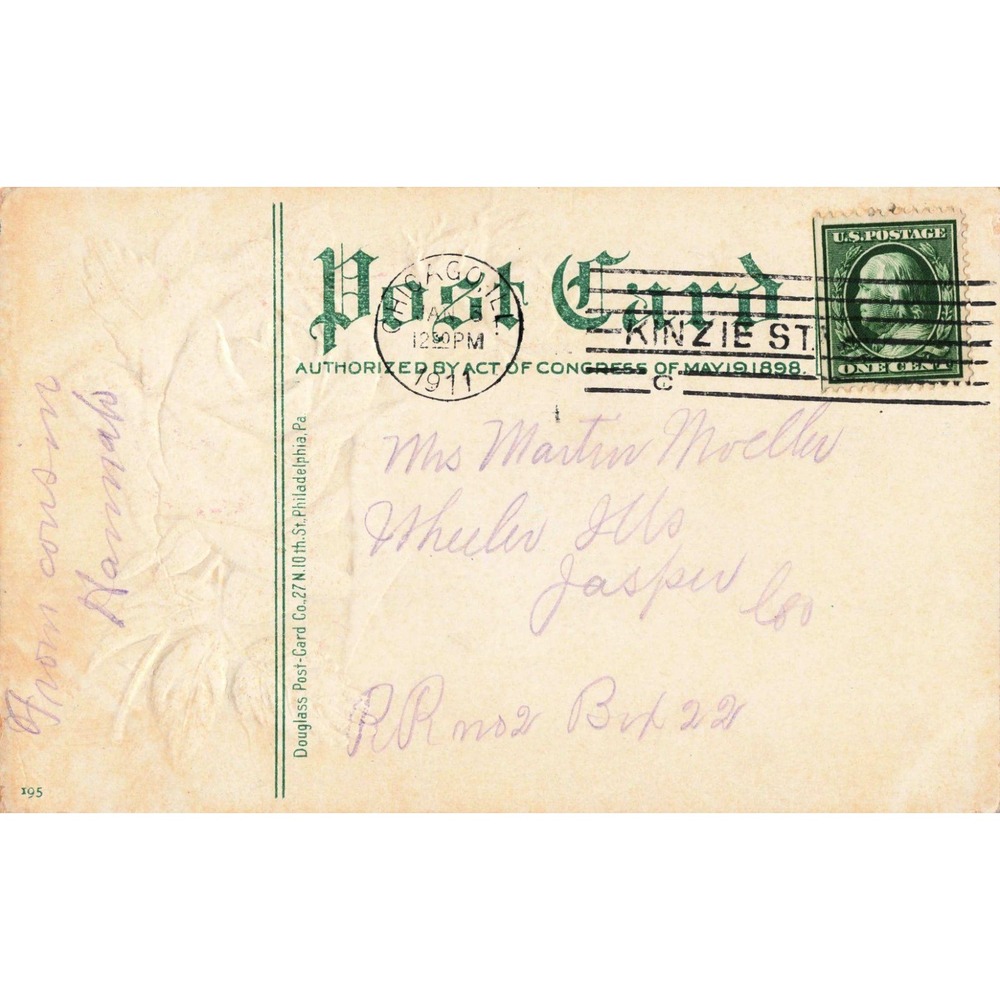 Post Card
AUTHORIZED BY ACT OF CONGRESS OF MAY 19 1898.
CHICAGO, ILL.
JAN 3
12 30 PM
1911
KINZIE ST.
C
U.S. POSTAGE
ONE CENT
Mrs Martin Moeller
Wheeler Ills
Jasper Co
RR no 2 Box 22
From cousin
Hannah
Douglass Post-Card Co., 27 N. 10th. St. Philadelphia, Pa.
195